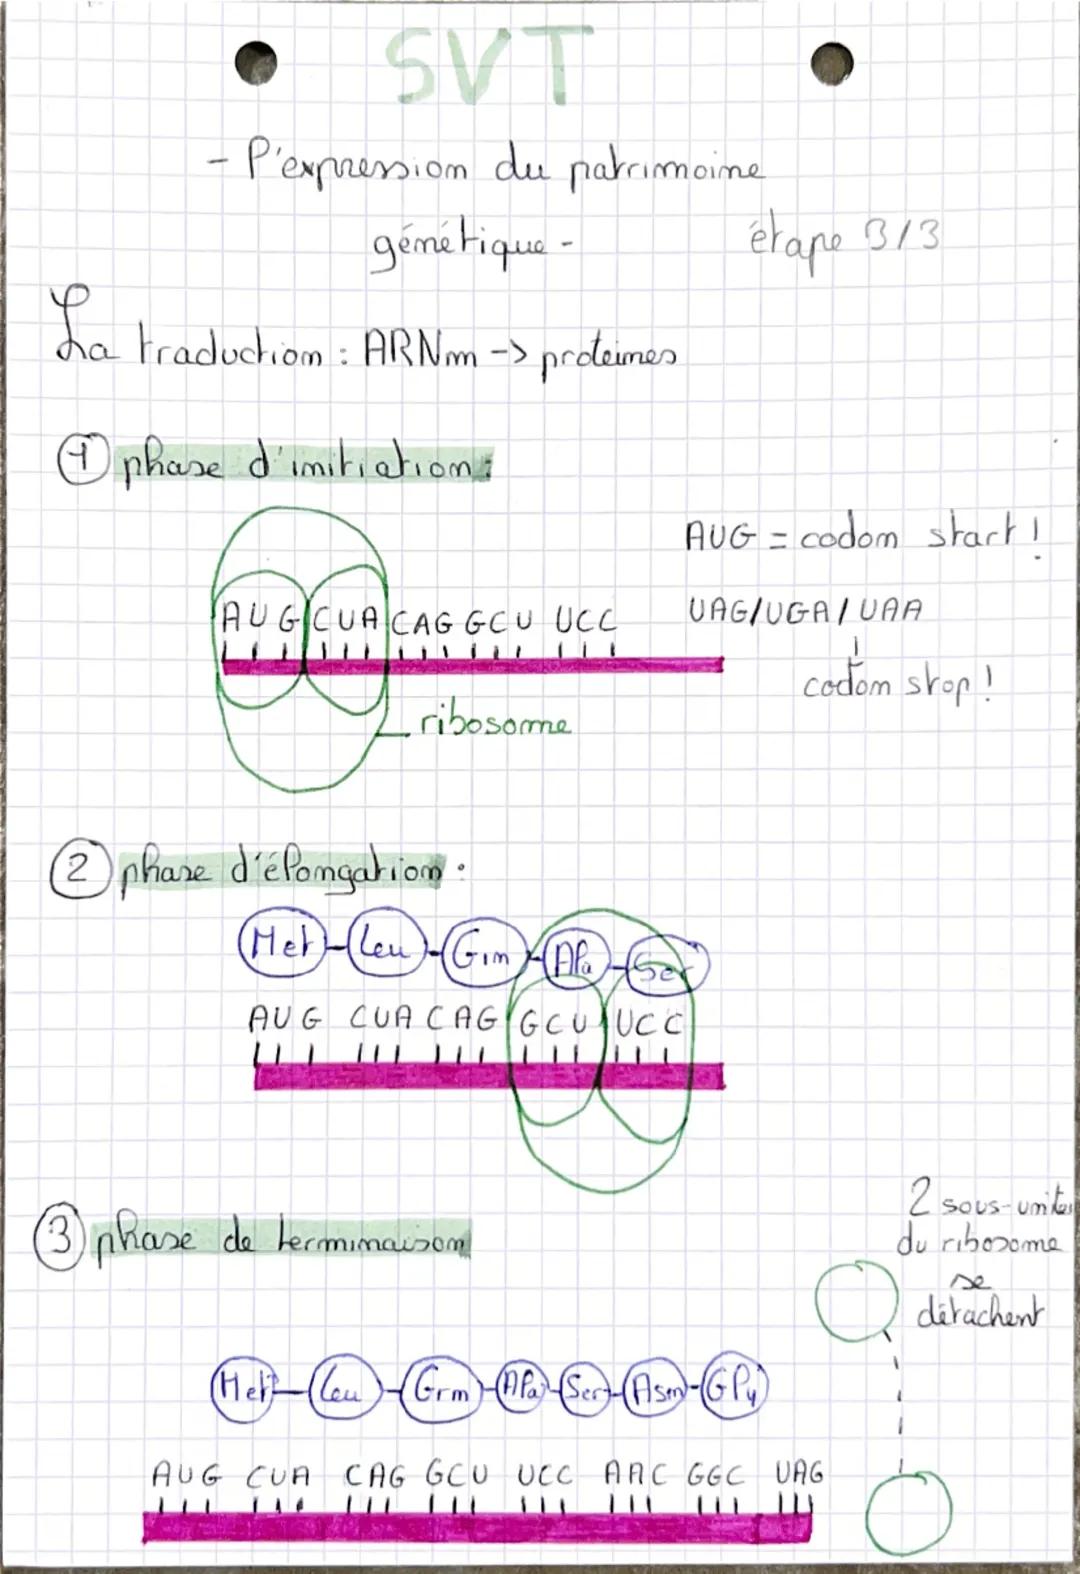 SVT
- l'expression du patrimoine
génétique -
étape 3/3
La traduction : ARNm -> proteines
1 phase d'initiation :
AUG CUA CAG GCU UCC
ribosome
AUG = codon start !
UAG/UGA/UAA
codon stop !
2 phase d'élongation :
Met-Leu-Gln-Ala-Ser
AUG CUA CAG GCU UCC
3 phase de terminaison
2 sous-unités
du ribosome
se
détachent
Met-Leu-Grn-Ala-Ser-Asn-Gly
AUG CUA CAG GCU UCC AAC GGC UAG